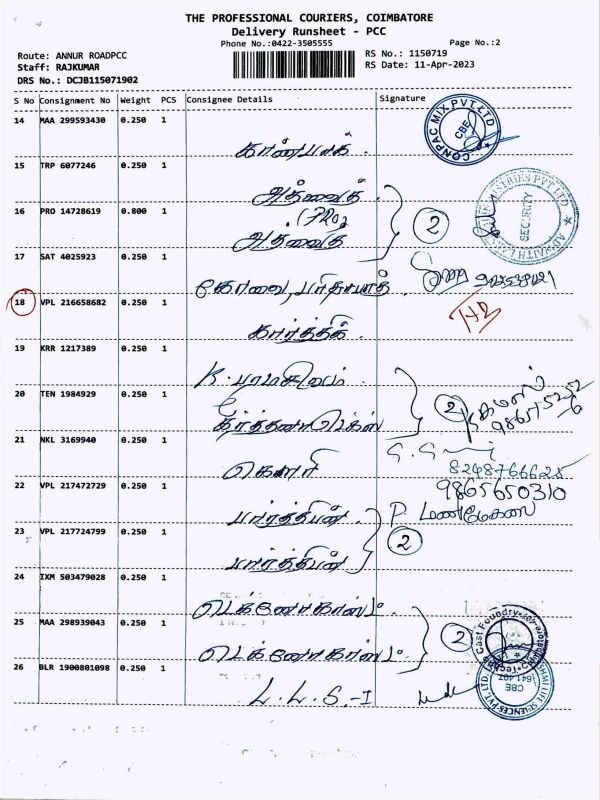 THE PROFESSIONAL COURIERS, COIMBATORE
Delivery Runsheet - PCC
Phone No.:0422-3505555
Page No.:2
Route: ANNUR ROADPCC
RS No.: 1150719
Staff: RAJKUMAR
RS Date: 11-Apr-2023
DRS No.: DCJB115071902
S No Consignment No Weight PCS Consignee Details Signature
14 MAA 299593430 0.250 1
CONPAC MIX PVT LTD
CBE
கான்பாக்.
15 TRP 6077246 0.250 1
அத்வைத்
16 PRO 14728619 0.800 1
(PRO)
2
SECURITY
அத்வைத்
17 SAT 4025923 0.250 1
கோவை,
18 VPL 216658682 0.250 1
கார்த்திக்
19 KRR 1217389 0.250 1
K.
20 TEN 1984929 0.250 1
2
21 NKL 3169940 0.250 1
கௌரி
9865650310
22 VPL 217472729 0.250 1
பார்த்திபன்.
P. மணிமேகலை
23 VPL 217724799 0.250 1
2
பார்த்திபன்
24 IXM 503479028 0.250 1
டெக்னோகாஸ்ட்.
25 MAA 298939043 0.250 1
2
டெக்னோகாஸ்ட்.
CBE
26 BLR 1900801098 0.250 1
L. L. S. -I